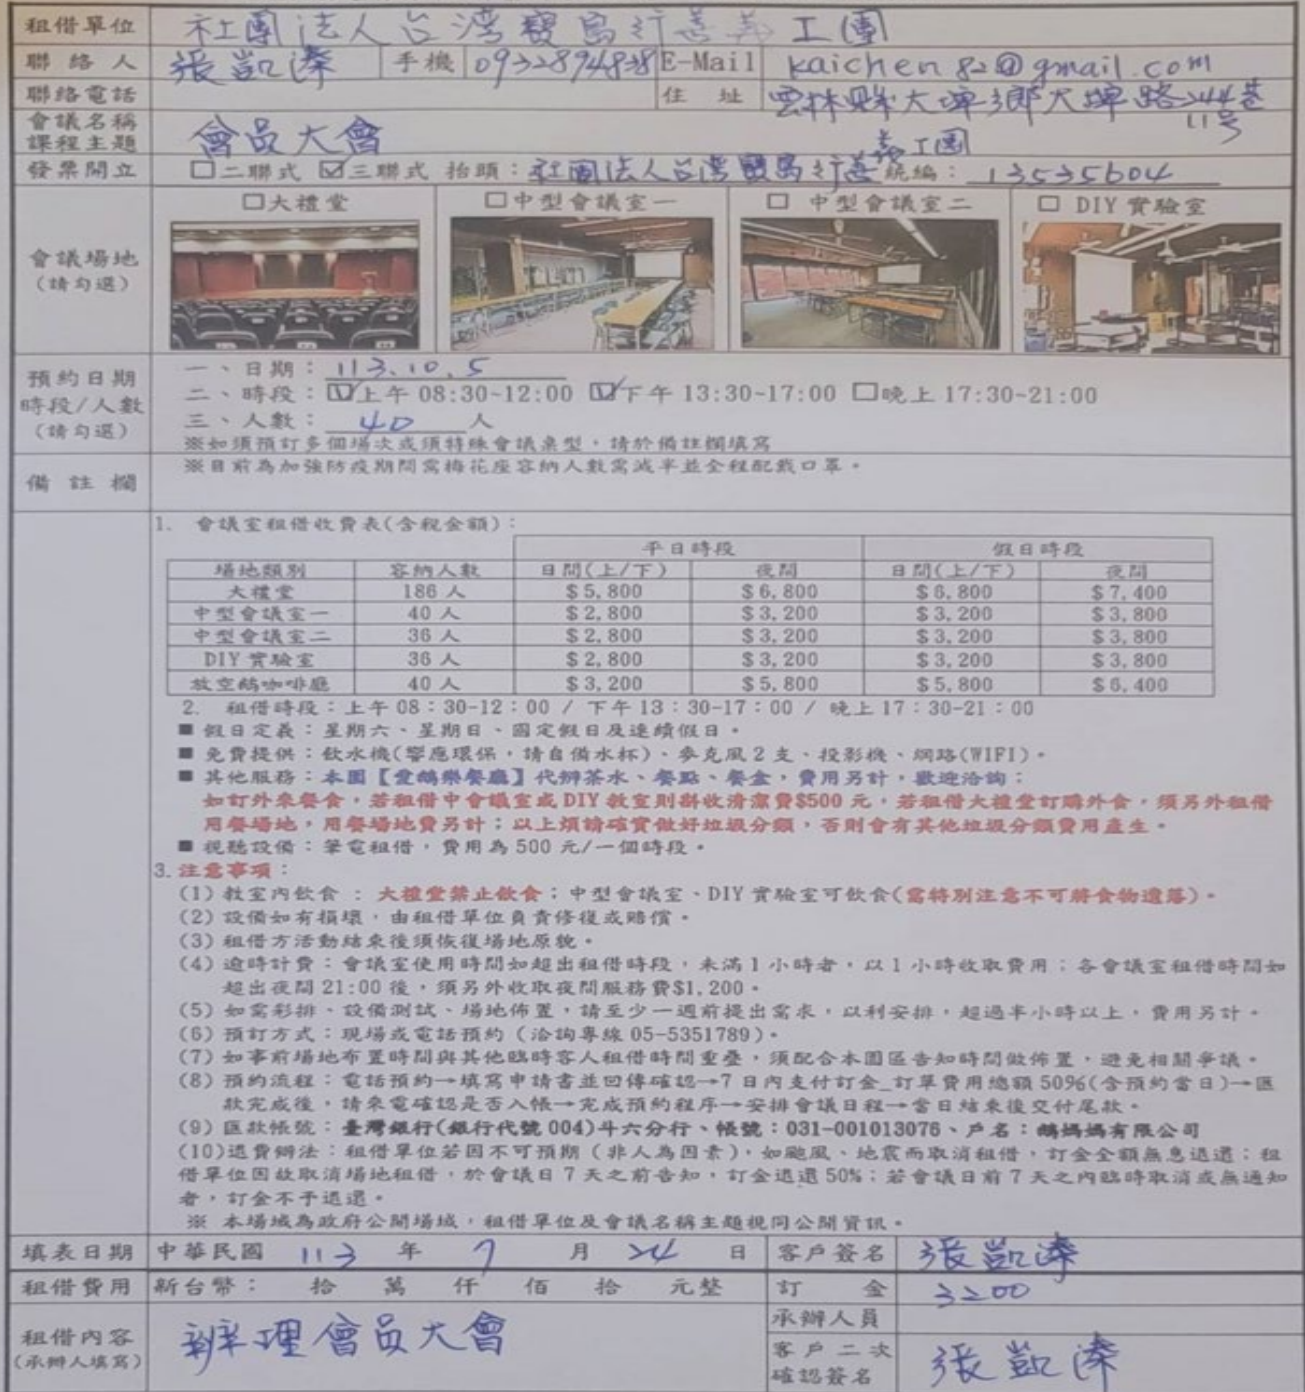 租借單位 社團法人台灣寶島行善義工團
聯絡人 張凱溱 手機 0932894838 E-Mail kaichen82@gmail.com
聯絡電話 住址 雲林縣大埤鄉大埤路244巷11号
會議名稱
課程主題 會員大會
發票開立 □二聯式 ☑三聯式 抬頭：社團法人台灣寶島行善義工團 統編：13535604
□大禮堂 □中型會議室一 □ 中型會議室二 □ DIY 實驗室
會議場地
(請勾選)
預約日期
時段/人數
(請勾選)
一、日期：113.10.5
二、時段：☑上午 08:30~12:00 ☑下午 13:30~17:00 □晚上 17:30~21:00
三、人數：40 人
※如須預訂多個場次或須特殊會議桌型，請於備註欄填寫
備註欄 ※目前為加強防疫期間需梅花座容納人數需減半並全程配戴口罩。
1. 會議室租借收費表(含稅金額)：
平日時段 假日時段
場地類別 容納人數 日間(上/下) 夜間 日間(上/下) 夜間
大禮堂 186 人 $5,800 $6,800 $6,800 $7,400
中型會議室一 40 人 $2,800 $3,200 $3,200 $3,800
中型會議室二 36 人 $2,800 $3,200 $3,200 $3,800
DIY 實驗室 36 人 $2,800 $3,200 $3,200 $3,800
放空鵝咖啡廳 40 人 $3,200 $5,800 $5,800 $6,400
2. 租借時段：上午 08：30-12：00 / 下午 13：30-17：00 / 晚上 17：30-21：00
■ 假日定義：星期六、星期日、國定假日及連續假日。
■ 免費提供：飲水機(響應環保，請自備水杯)、麥克風 2 支、投影機、網路(WIFI)。
■ 其他服務：本園【愛鵝樂餐廳】代辦茶水、餐點、餐盒，費用另計，歡迎洽詢：
如訂外來餐食，若租借中會議室或 DIY 教室則斟收清潔費$500 元，若租借大禮堂訂購外食，須另外租借
用餐場地，用餐場地費另計；以上煩請確實做好垃圾分類，否則會有其他垃圾分類費用產生。
■ 視聽設備：筆電租借，費用為 500 元/一個時段。
3. 注意事項：
(1) 教室內飲食 ： 大禮堂禁止飲食；中型會議室、DIY 實驗室可飲食(需特別注意不可將食物遺落)。
(2) 設備如有損壞，由租借單位負責修復或賠償。
(3) 租借方活動結束後須恢復場地原貌。
(4) 逾時計費：會議室使用時間如超出租借時段，未滿 1 小時者，以 1 小時收取費用；各會議室租借時間如
超出夜間 21:00 後，須另外收取夜間服務費$1,200。
(5) 如需彩排、設備測試、場地佈置，請至少一週前提出需求，以利安排，超過半小時以上，費用另計。
(6) 預訂方式：現場或電話預約 (洽詢專線 05-5351789)。
(7) 如事前場地布置時間與其他臨時客人租借時間重疊，須配合本園區告知時間做佈置，避免相關爭議。
(8) 預約流程：電話預約→填寫申請書並回傳確認→7 日內支付訂金_訂單費用總額 50%(含預約當日)→匯
款完成後，請來電確認是否入帳→完成預約程序→安排會議日程→當日結束後交付尾款。
(9) 匯款帳號：臺灣銀行(銀行代號 004)斗六分行、帳號：031-001013076、戶名：鵝媽媽有限公司
(10)退費辦法：租借單位若因不可預期 (非人為因素)，如颱風、地震而取消租借，訂金全額無息退還；租
借單位因故取消場地租借，於會議日 7 天之前告知，訂金退還 50%；若會議日前 7 天之內臨時取消或無通知
者，訂金不予退還。
※ 本場域為政府公開場域，租借單位及會議名稱主題視同公開資訊。
填表日期 中華民國 113 年 7 月 24 日 客戶簽名 張凱溱
租借費用 新台幣： 拾 萬 仟 佰 拾 元整 訂金 3200
租借內容
(承辦人填寫) 辦理會員大會
承辦人員
客戶二次
確認簽名 張凱溱